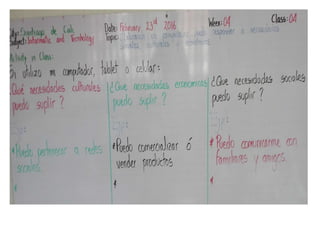 City: Santiago de Cali Date: February 23rd 2016 Week: 04 Class: 04
Subject: Informatic and Technology Topic:
Activity in Class:
Si utilizo mi computador, tablet o celular:
¿Qué necesidades culturales puedo suplir?
* Puedo pertenecer a redes
sociales.
*
¿Qué necesidades economicas
puedo suplir?
* Puedo comercializar ó
vender productos
*
¿Qué necesidades sociales
puedo suplir?
* Puedo comunicarme con
familiares y amigos.
*